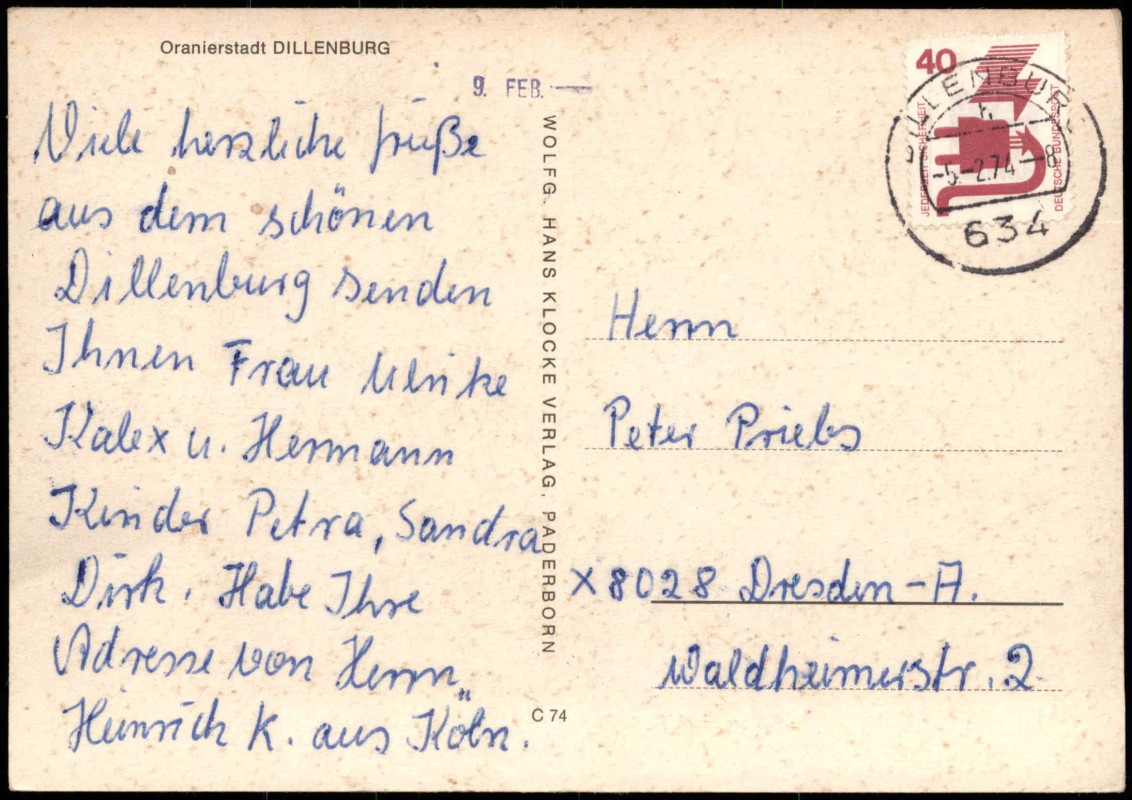 Oranierstadt DILLENBURG
9. FEB.
Viele herzliche Grüße
aus dem schönen
Dillenburg senden
Ihnen Frau Ulrike
Kalex u. Hermann
Kinder Petra, Sandra
Dirk. Habe Ihre
Adresse von Herrn
Heinrich K. aus Köln.
WOLFG. HANS KLOCKE VERLAG, PADERBORN
C 74
40
JEDERZEIT SICHERHEIT
DEUTSCHE BUNDESPOST
DILLENBURG
-5.-2.74-8
634
Herrn
Peter Priebs
X 8028 Dresden-A.
Waldheimerstr. 2